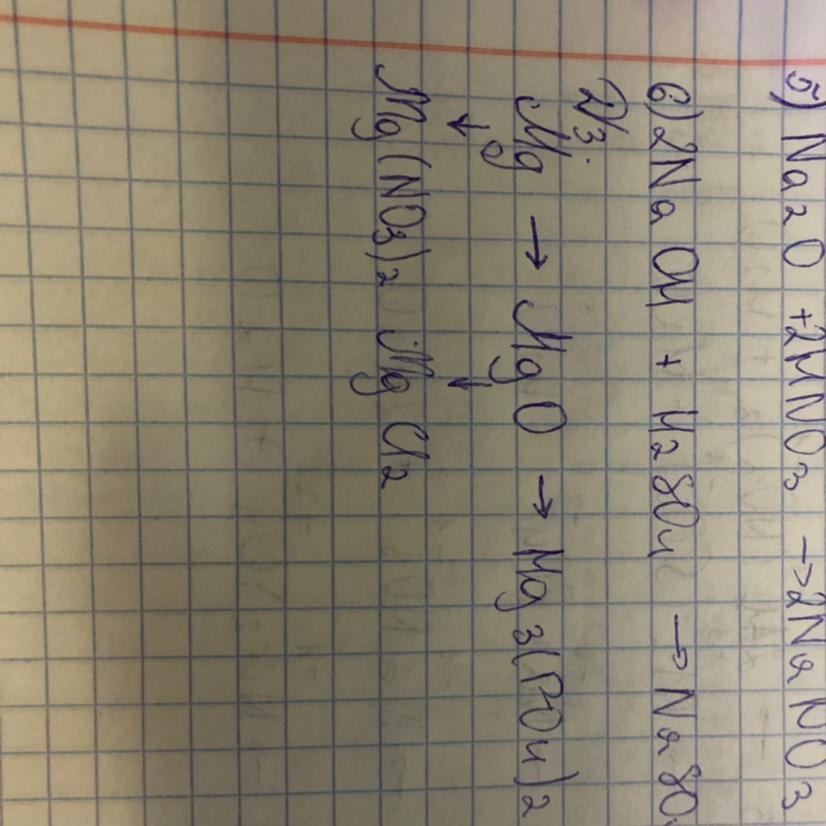 5) Na2O + 2HNO3 → 2NaNO3
6) 2NaOH + H2SO4 → NaSO
Mg → MgO → Mg3(PO4)2
↓ ↓
Mg(NO3)2 MgCl2